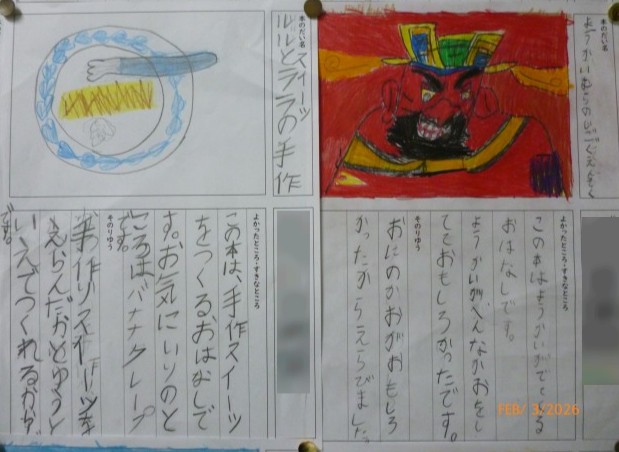 本のだい名
ようかいむらのじごくえんそく
よかったところ・すきなところ
この本はようかいがでてくる
おはなしです。
ようかいが、へんなかおをし
てておもしろかったです。
そのりゆう
おにのかおがおもしろ
かったからえらびました。
FEB/ 3/2026
本のだい名
ルルとララの手作
スイーツ
よかったところ・すきなところ
この本は、手作スイーツ
をつくるおはなしで
す。お気にいりのと
ころはバナナクレープ
です。
そのりゆう
手作りスイーツを
えらんだかとゆうと
いえでつくれるから
です。